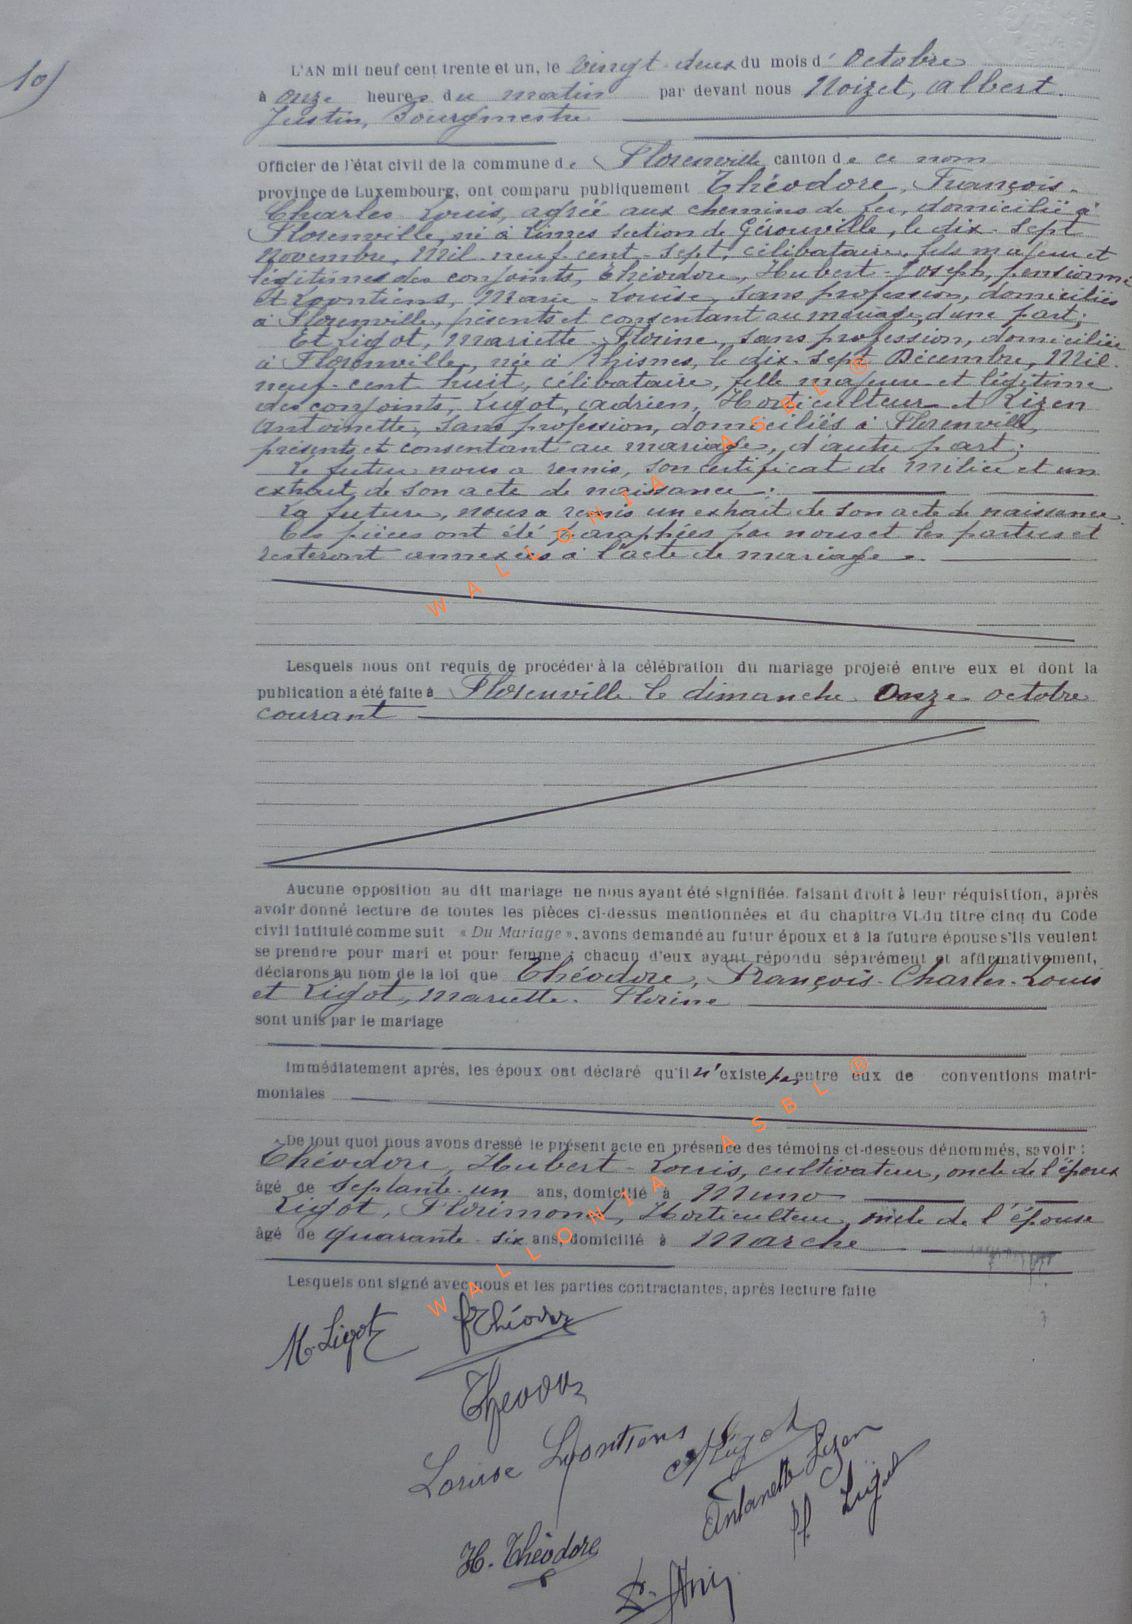 10)
L'AN mil neuf cent trente et un, le vingt-deux du mois d' Octobre
à onze heures du matin par devant nous Noizet, Albert.
Justin, Bourgmestre
Officier de l'état civil de la commune de Florenville canton de ce nom
province de Luxembourg, ont comparu publiquement Théodore, François-
Charles-Louis, agréé aux chemins de fer, domicilié à
Florenville, né à Limes section de Gérouville, le dix-sept
Novembre, Mil-neuf-cent-sept, célibataire, fils majeur et
légitime des conjoints, Théodore, Hubert-Joseph, pensionné
et Lyontiens, Marie-Louise, sans profession, domiciliés
à Florenville, présents et consentant au mariage, d'une part;
Et Ligot, Mariette-Florine, sans profession, domiciliée
à Florenville, née à Thisnes, le dix-sept Décembre, Mil-
neuf-cent huit, célibataire, fille majeure et légitime
des conjoints, Ligot, Adrien, Horticulteur et Lizen
Antoinette, sans profession, domiciliés à Florenville,
présents et consentant au mariage, d'autre part;
Le futur nous a remis, son certificat de milice et un
extrait de son acte de naissance;
La future, nous a remis un extrait de son acte de naissance.
Ces pièces ont été paraphées par nous et les parties et
resteront annexées à l'acte de mariage.
Lesquels nous ont requis de procéder à la célébration du mariage projeté entre eux et dont la
publication a été faite à Florenville le dimanche Onze octobre
courant
Aucune opposition au dit mariage ne nous ayant été signifiée. faisant droit à leur réquisition, après
avoir donné lecture de toutes les pièces ci-dessus mentionnées et du chapitre VI du titre cinq du Code
civil intitulé comme suit « Du Mariage », avons demandé au futur époux et à la future épouse s'ils veulent
se prendre pour mari et pour femme; chacun d'eux ayant répondu séparément et affirmativement,
déclarons au nom de la loi que Théodore, François-Charles-Louis
et Ligot, Mariette-Florine
sont unis par le mariage
Immédiatement après, les époux ont déclaré qu'il n'existe pas entre eux de conventions matri-
moniales
De tout quoi nous avons dressé le présent acte en présence des témoins ci-dessous dénommés, savoir :
Théodore, Hubert-Louis, cultivateur, oncle de l'époux
âgé de septante-un ans, domicilié à Muno
Ligot, Florimond, Horticulteur, oncle de l'épouse
âgé de quarante-six ans, domicilié à Marche
Lesquels ont signé avec nous et les parties contractantes, après lecture faite
M. Ligot FThéodore
Théodore
Louise Lyontiens A Ligot
Antoinette Lizen
H. Théodore fl. Ligot
WALLONIA ASBL ®
WALLONIA ASBL ®